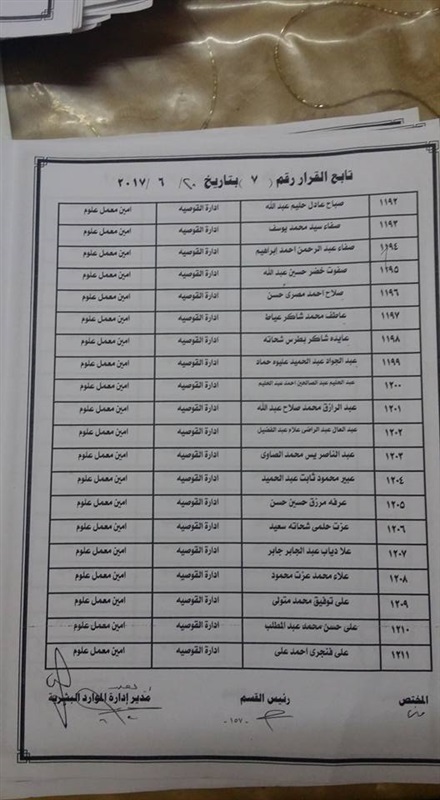 تابع القرار رقم ( ٧ ) بتاريخ ٢٠ / ٦ / ٢٠١٧
١١٩٢ صباح عادل حليم عبد الله ادارة القوصيه امين معمل علوم
١١٩٣ صفاء سيد محمد يوسف ادارة القوصيه امين معمل علوم
١١٩٤ صفاء عبد الرحمن احمد ابراهيم ادارة القوصيه امين معمل علوم
١١٩٥ صفوت خضر حسين عبد الله ادارة القوصيه امين معمل علوم
١١٩٦ صلاح احمد مصرى حسن ادارة القوصيه امين معمل علوم
١١٩٧ عاطف محمد شاكر عياط ادارة القوصيه امين معمل علوم
١١٩٨ عايده شاكر بطرس شحاته ادارة القوصيه امين معمل علوم
١١٩٩ عبد الجواد عبد الحميد عليوه حماد ادارة القوصيه امين معمل علوم
١٢٠٠ عبد الحليم عبد الصالحين احمد عبد الحليم ادارة القوصيه امين معمل علوم
١٢٠١ عبد الرازق محمد صلاح عبد الله ادارة القوصيه امين معمل علوم
١٢٠٢ عبد العال عبد الراضى علام عبد الفضيل ادارة القوصيه امين معمل علوم
١٢٠٣ عبد الناصر يس محمد الصاوى ادارة القوصيه امين معمل علوم
١٢٠٤ عبير محمود ثابت عبد الحميد ادارة القوصيه امين معمل علوم
١٢٠٥ عرفه مرزق حسين حسن ادارة القوصيه امين معمل علوم
١٢٠٦ عزت حلمى شحاته سعيد ادارة القوصيه امين معمل علوم
١٢٠٧ علا دياب عبد الجابر جابر ادارة القوصيه امين معمل علوم
١٢٠٨ علاء محمد عزت محمود ادارة القوصيه امين معمل علوم
١٢٠٩ على توفيق محمد متولى ادارة القوصيه امين معمل علوم
١٢١٠ على حسن محمد عبد المطلب ادارة القوصيه امين معمل علوم
١٢١١ على فنجرى احمد على ادارة القوصيه امين معمل علوم
المختص رئيس القسم مدير إدارة الموارد البشرية